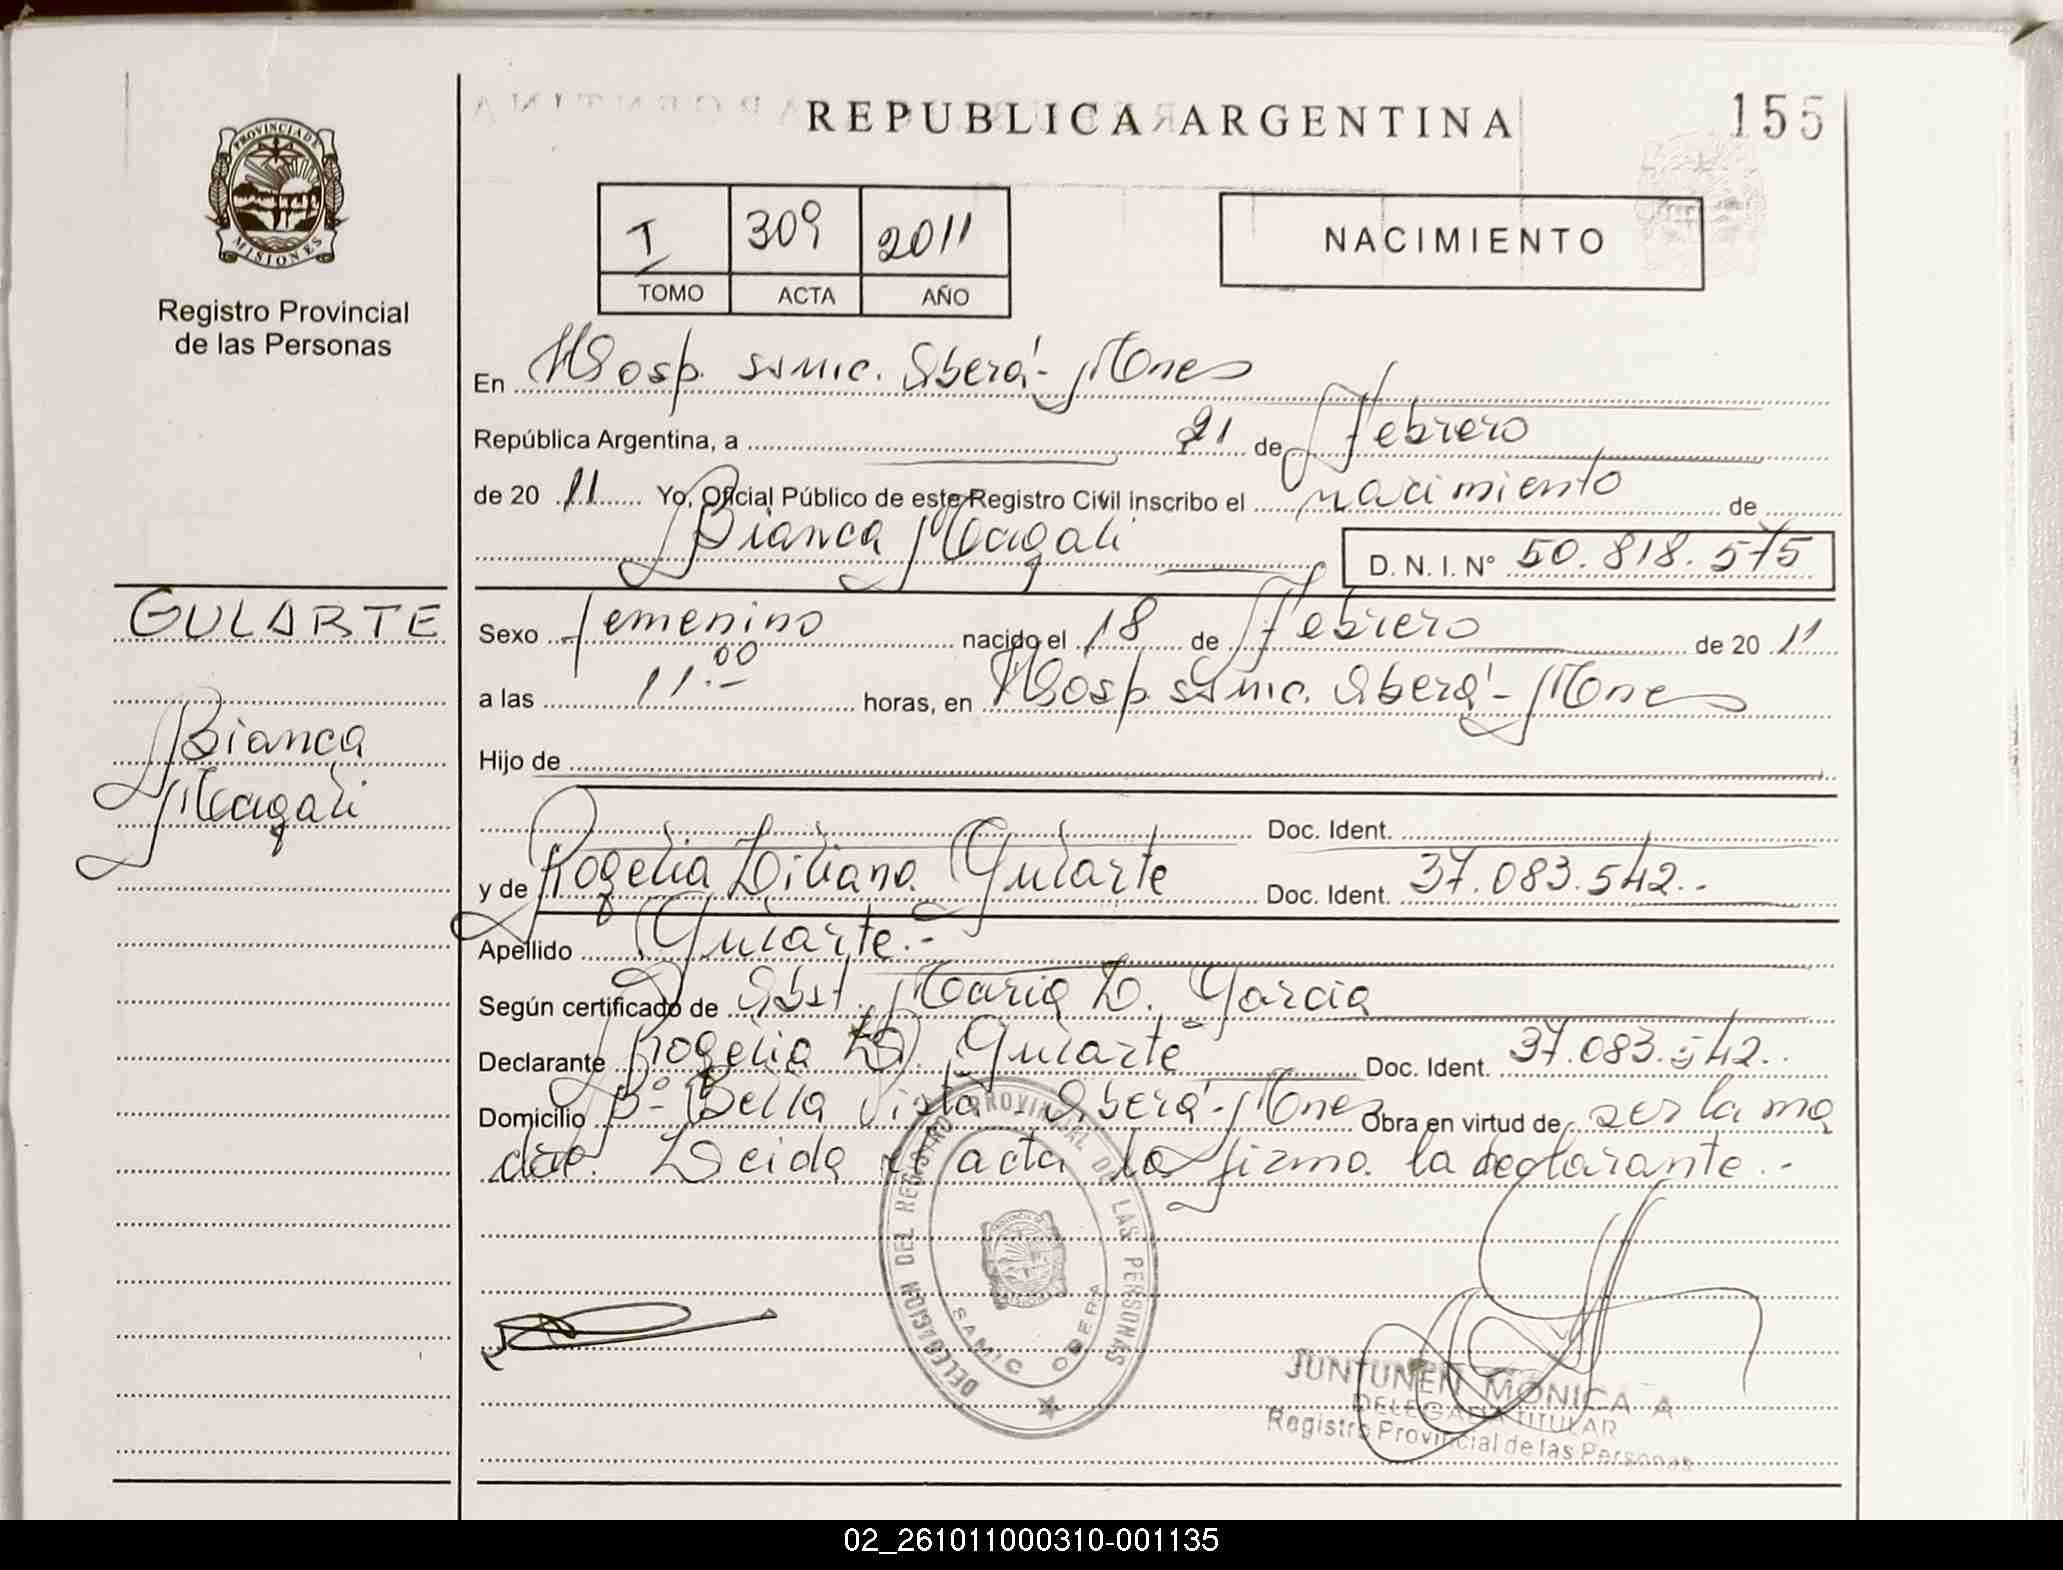 REPUBLICA ARGENTINA
155
PROVINCIA DE
MISIONES
Registro Provincial
de las Personas
I 309 2011
TOMO ACTA AÑO
NACIMIENTO
En Hosp. Samic. Oberá - Mnes
República Argentina, a 21 de Febrero
de 20 11 Yo, Oficial Público de este Registro Civil inscribo el nacimiento de
Bianca Magali D. N. I. N° 50.818.575
GULARTE
Bianca
Magali
Sexo femenino nacido el 18 de Febrero de 20 11
a las 11.00 horas, en Hosp. Samic. Oberá - Mnes
Hijo de
Doc. Ident.
y de Rogelia Liliana Gularte Doc. Ident. 37.083.542.-
Apellido Gularte.-
Según certificado de Obst. Maria L. Garcia
Declarante Rogelia L. Gularte Doc. Ident. 37.083.542.-
Domicilio B° Bella Vista - Oberá - Mnes Obra en virtud de ser la ma
dre. Leida el acta la firma la declarante.-
DELEGACION DEL REGISTRO PROVINCIAL DE LAS PERSONAS
SAMIC OBERA
JUNTUNEN MONICA A
DELEGADA TITULAR
Registro Provincial de las Personas
02_261011000310-001135